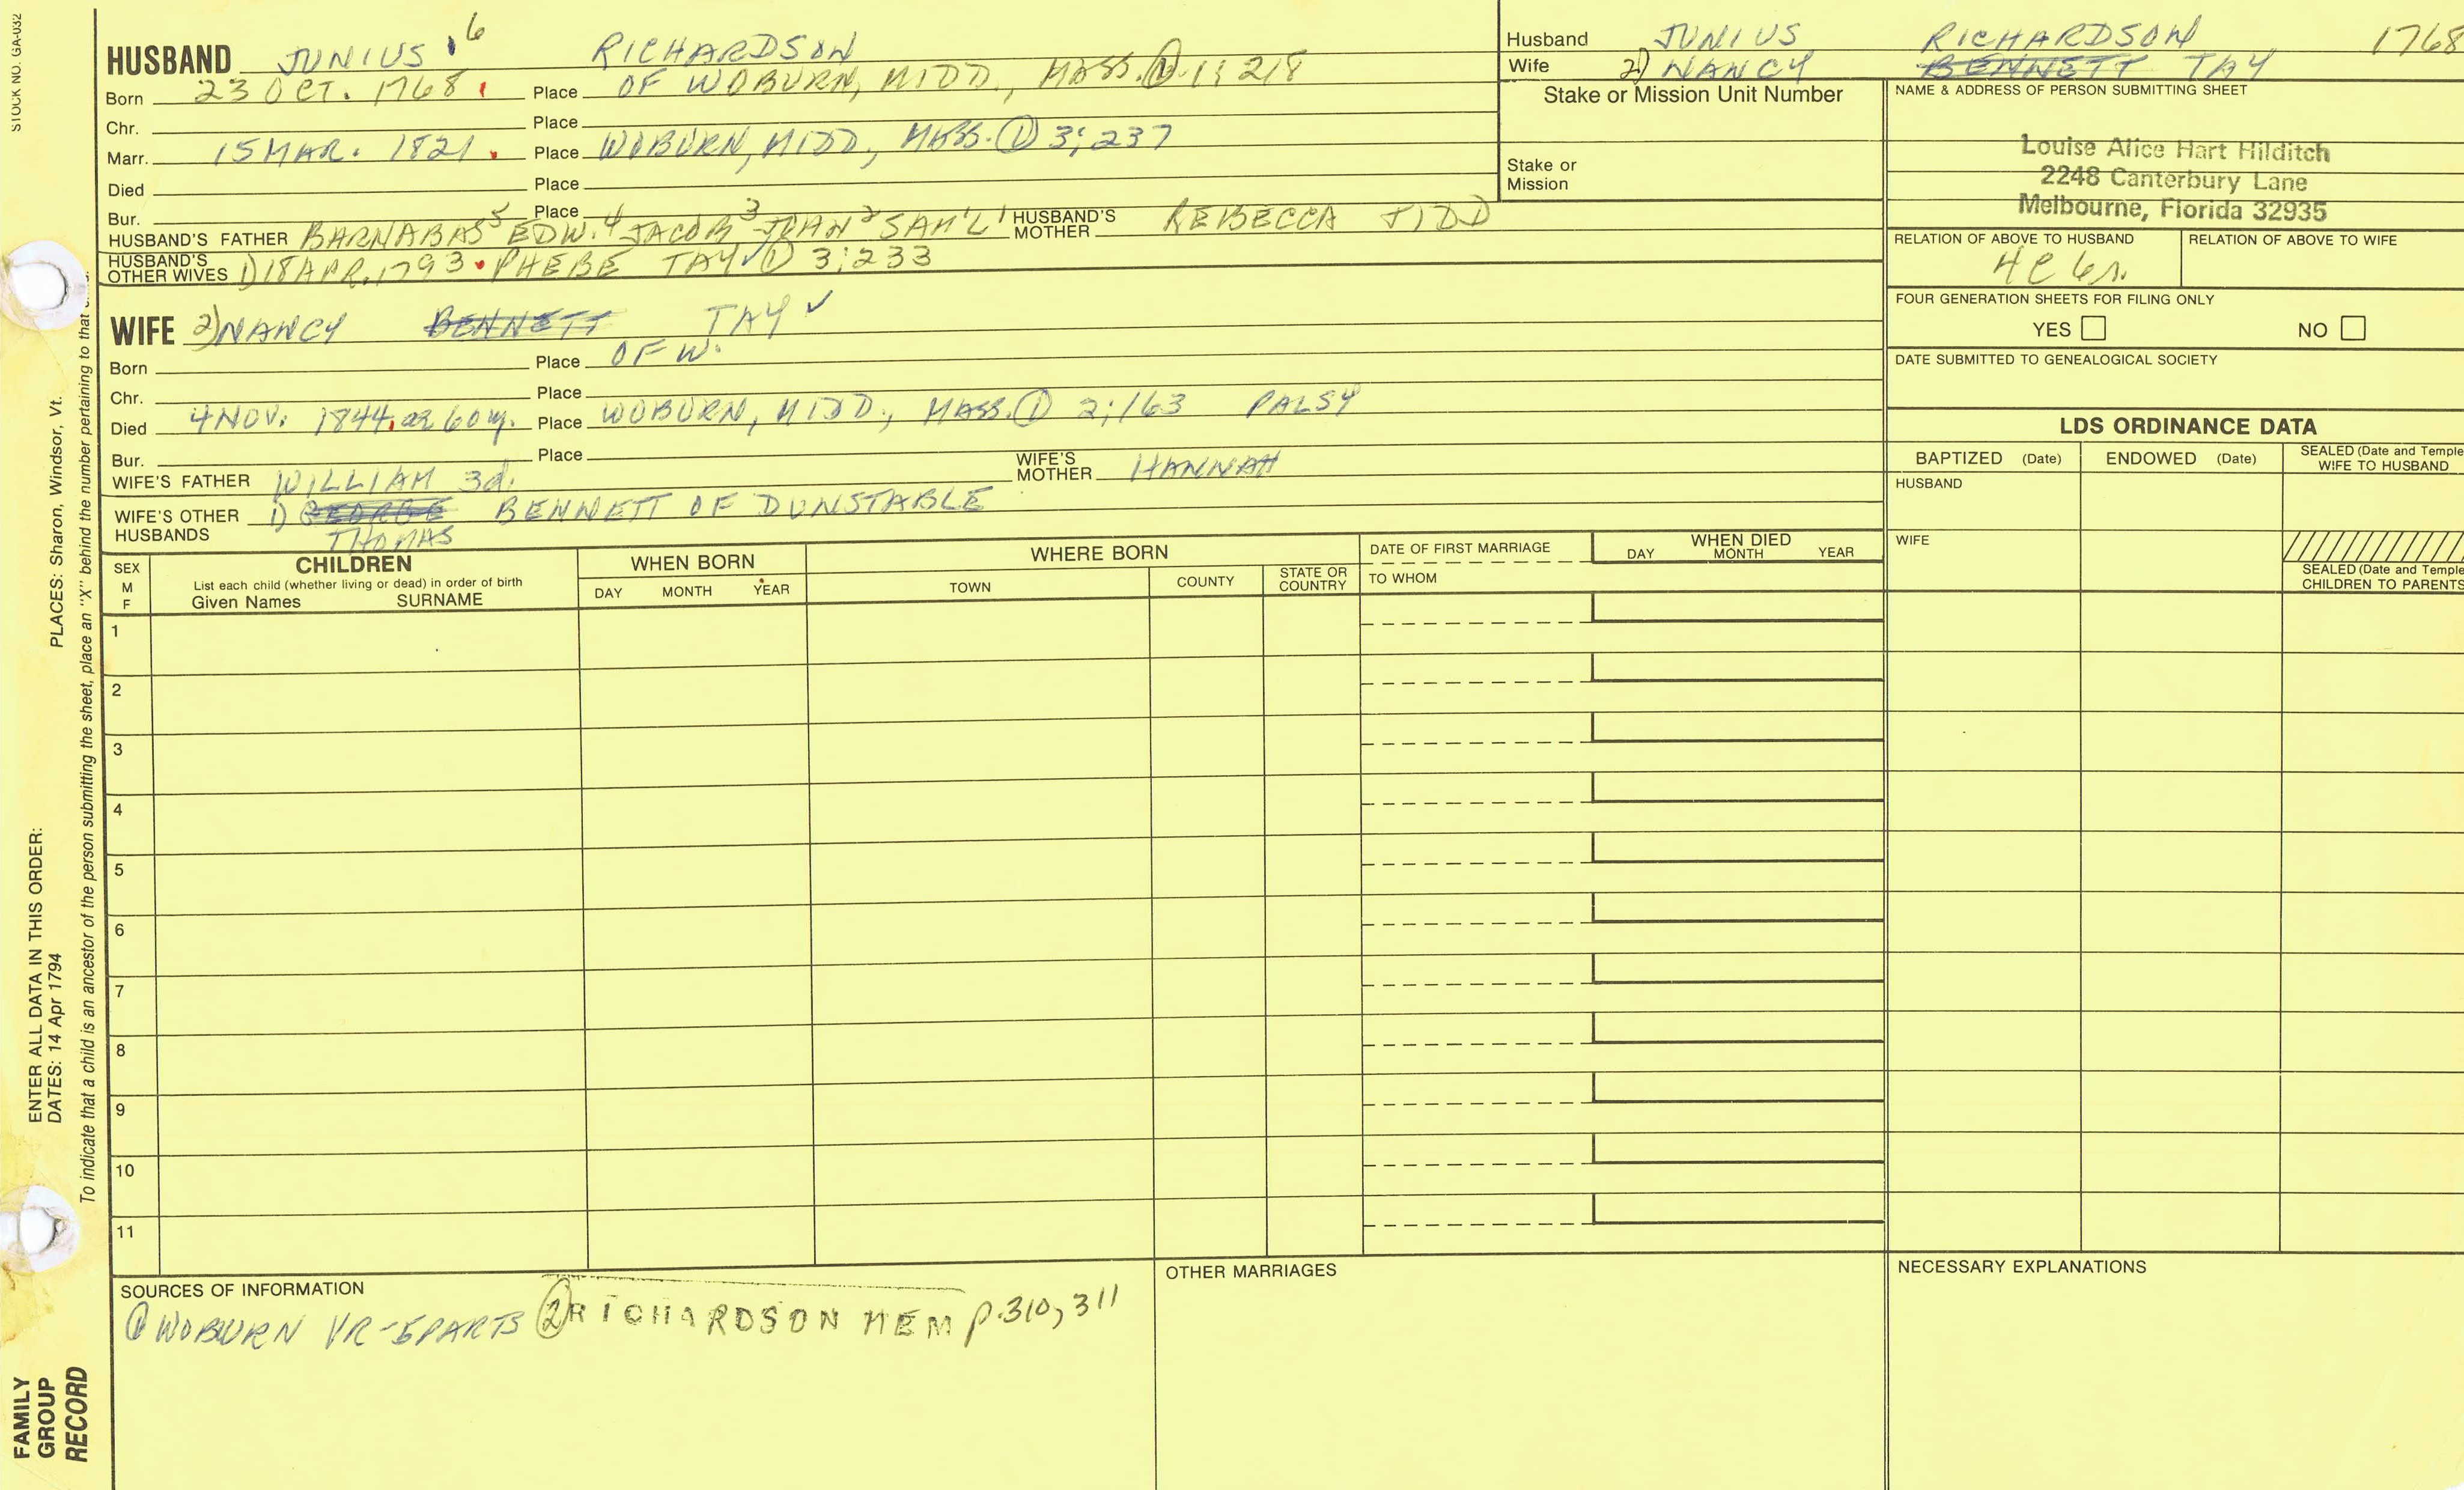 STOCK NO. GA-032
HUSBAND JUNIUS 6 RICHARDSON
Born 23 OCT. 1768 Place OF WOBURN, MIDD., MASS. ① 1; 218
Chr. Place
Marr. 15 MAR. 1821. Place WOBURN, MIDD., MASS. ① 3; 237
Died Place
Bur. Place
HUSBAND'S FATHER BARNABAS 5 EDW. 4 JACOB 3 JOHN 2 SAM'L 1 HUSBAND'S MOTHER REBECCA TIDD
HUSBAND'S OTHER WIVES 1) 18 APR. 1793. PHEBE TAY ✓ ① 3; 233
WIFE 2) NANCY BENNETT TAY ✓
Born Place OF W.
Chr. Place
Died 4 NOV. 1844. ae 60 y. Place WOBURN, MIDD., MASS. ① 2; 163 PALSY
Bur. Place
WIFE'S FATHER WILLIAM 3d. WIFE'S MOTHER HANNAH
WIFE'S OTHER HUSBANDS 1) GEORGE BENNETT OF DUNSTABLE
THOMAS
Husband JUNIUS RICHARDSON 1768
Wife 2) NANCY BENNETT TAY
Stake or Mission Unit Number
Stake or
Mission
NAME & ADDRESS OF PERSON SUBMITTING SHEET
Louise Alice Hart Hilditch
2248 Canterbury Lane
Melbourne, Florida 32935
RELATION OF ABOVE TO HUSBAND RELATION OF ABOVE TO WIFE
4C 6r.
FOUR GENERATION SHEETS FOR FILING ONLY
YES NO
DATE SUBMITTED TO GENEALOGICAL SOCIETY
LDS ORDINANCE DATA
BAPTIZED (Date) ENDOWED (Date) SEALED (Date and Temple
WIFE TO HUSBAND
HUSBAND
WIFE
SEALED (Date and Temple
CHILDREN TO PARENTS
SEX
M
F
CHILDREN
List each child (whether living or dead) in order of birth
Given Names SURNAME
WHEN BORN
DAY MONTH YEAR
WHERE BORN
TOWN COUNTY STATE OR COUNTRY
DATE OF FIRST MARRIAGE
TO WHOM
WHEN DIED
DAY MONTH YEAR
1
2
3
4
5
6
7
8
9
10
11
SOURCES OF INFORMATION
① WOBURN VR-5PARTS ② RICHARDSON MEM p.310, 311
OTHER MARRIAGES
NECESSARY EXPLANATIONS
PLACES: Sharon, Windsor, Vt.
ENTER ALL DATA IN THIS ORDER:
DATES: 14 Apr 1794
To indicate that a child is an ancestor of the person submitting the sheet, place an "X" behind the number pertaining to that
FAMILY
GROUP
RECORD